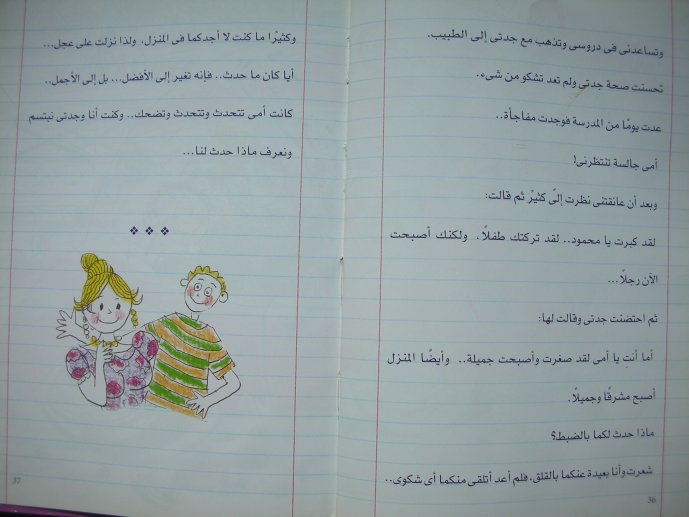 وتساعدنى فى دروسى وتذهب مع جدتى إلى الطبيب.
تحسنت صحة جدتى ولم تعد تشكو من شىء.
عدت يومًا من المدرسة فوجدت مفاجأة..
أمى جالسة تنتظرنى!
وبعد أن عانقتنى نظرت إلىّ كثيرً ثم قالت:
لقد كبرت يا محمود.. لقد تركتك طفلاً، ولكنك أصبحت
الآن رجلاً...
ثم احتضنت جدتى وقالت لها:
أما أنتِ يا أمى لقد صغرت وأصبحت جميلة.. وأيضًا المنزل
أصبح مشرقًا وجميلاً.
ماذا حدث لكما بالضبط؟
شعرت وأنا بعيدة عنكما بالقلق، فلم أعد أتلقى منكما أى شكوى..
36
وكثيرًا ما كنت لا أجدكما فى المنزل، ولذا نزلت على عجل...
أيا كان ما حدث.. فإنه تغير إلى الأفضل... بل إلى الأجمل..
كانت أمى تتحدث وتتحدث وتضحك.. وكنت أنا وجدتى نبتسم
ونعرف ماذا حدث لنا...
37